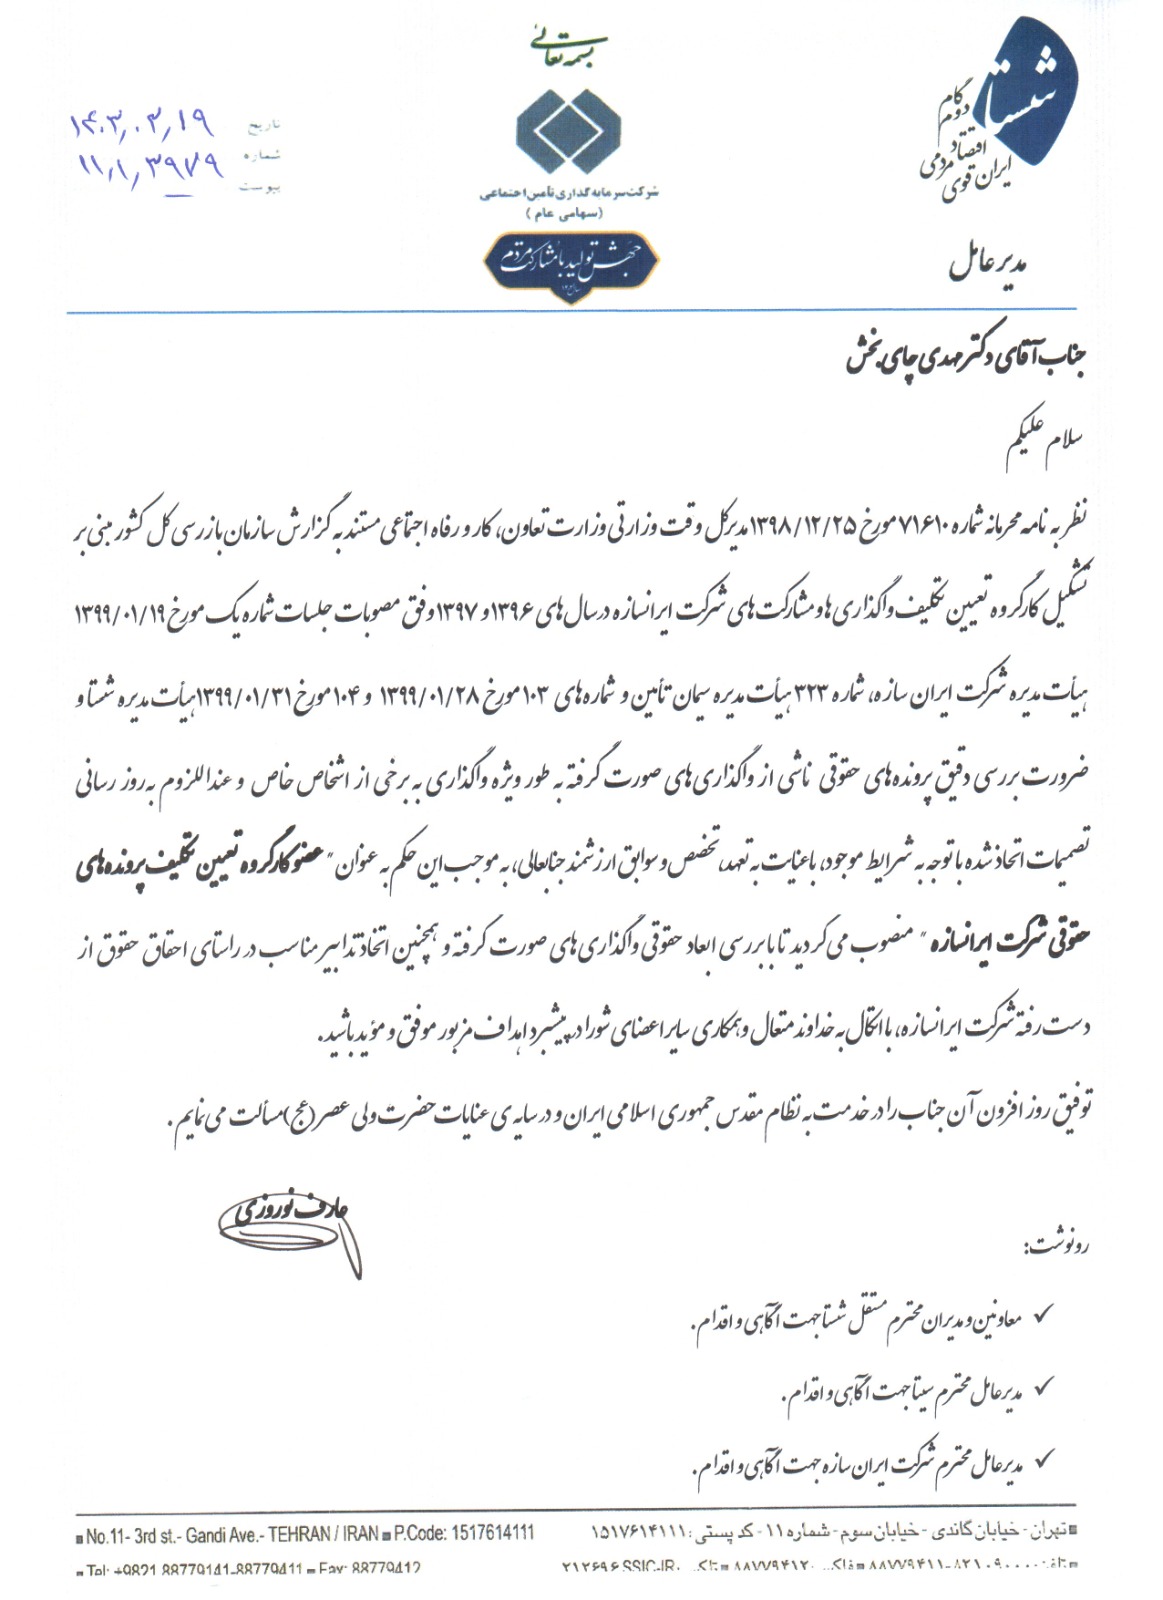 بسمه تعالی
شستا
گام دوم
اقتصاد مردمی
ایران قوی
شرکت سرمایه گذاری تأمین اجتماعی
(سهامی عام)
جهش تولید با مشارکت مردم
تاریخ ۱۴۰۳,۰۳,۱۹
شماره ۱۱,۱,۳۹۷۹
پیوست
مدیر عامل
جناب آقای دکتر مهدی چای بخش
سلام علیکم
نظر به نامه محرمانه شماره ۷۱۶۱۰ مورخ ۱۳۹۸/۱۲/۲۵ مدیرکل وقت وزارتی وزارت تعاون، کار و رفاه اجتماعی مستند به گزارش سازمان بازرسی کل کشور مبنی بر
تشکیل کارگروه تعیین تکلیف واگذاری ها و مشارکت های شرکت ایرانسازه در سال های ۱۳۹۶ و ۱۳۹۷ وفق مصوبات جلسات شماره یک مورخ ۱۳۹۹/۰۱/۱۹
هیأت مدیره شرکت ایران سازه، شماره ۳۲۳ هیأت مدیره سیمان تأمین و شماره های ۱۰۳ مورخ ۱۳۹۹/۰۱/۲۸ و ۱۰۴ مورخ ۱۳۹۹/۰۱/۳۱ هیأت مدیره شستا و
ضرورت بررسی دقیق پرونده های حقوقی ناشی از واگذاری های صورت گرفته به طور ویژه واگذاری به برخی از اشخاص خاص و عنداللزوم به روز رسانی
تصمیمات اتخاذ شده با توجه به شرایط موجود، با عنایت به تعهد، تخصص و سوابق ارزشمند جنابعالی، به موجب این حکم به عنوان " عضو کارگروه تعیین تکلیف پرونده های
حقوقی شرکت ایرانسازه " منصوب می گردید تا با بررسی ابعاد حقوقی واگذاری های صورت گرفته و همچنین اتخاذ تدابیر مناسب در راستای احقاق حقوق از
دست رفته شرکت ایرانسازه، با اتکال به خداوند متعال و همکاری سایر اعضای شورا در پیشبرد اهداف مزبور موفق و مؤید باشید.
توفیق روز افزون آن جناب را در خدمت به نظام مقدس جمهوری اسلامی ایران و در سایه ی عنایات حضرت ولی عصر (عج) مسألت می نمایم.
عارف نوروزی
رونوشت:
✓ معاونین و مدیران محترم مستقل شستا جهت آگاهی و اقدام.
✓ مدیرعامل محترم سیتا جهت آگاهی و اقدام.
✓ مدیرعامل محترم شرکت ایران سازه جهت آگاهی و اقدام.
■ تهران - خیابان گاندی - خیابان سوم - شماره ۱۱ - کد پستی: ۱۵۱۷۶۱۴۱۱۱
■ No.11- 3rd st.- Gandi Ave.- TEHRAN / IRAN ■ P.Code: 1517614111
■ Tel: +9821 88779141-88779411 ■ Fax: 88779412